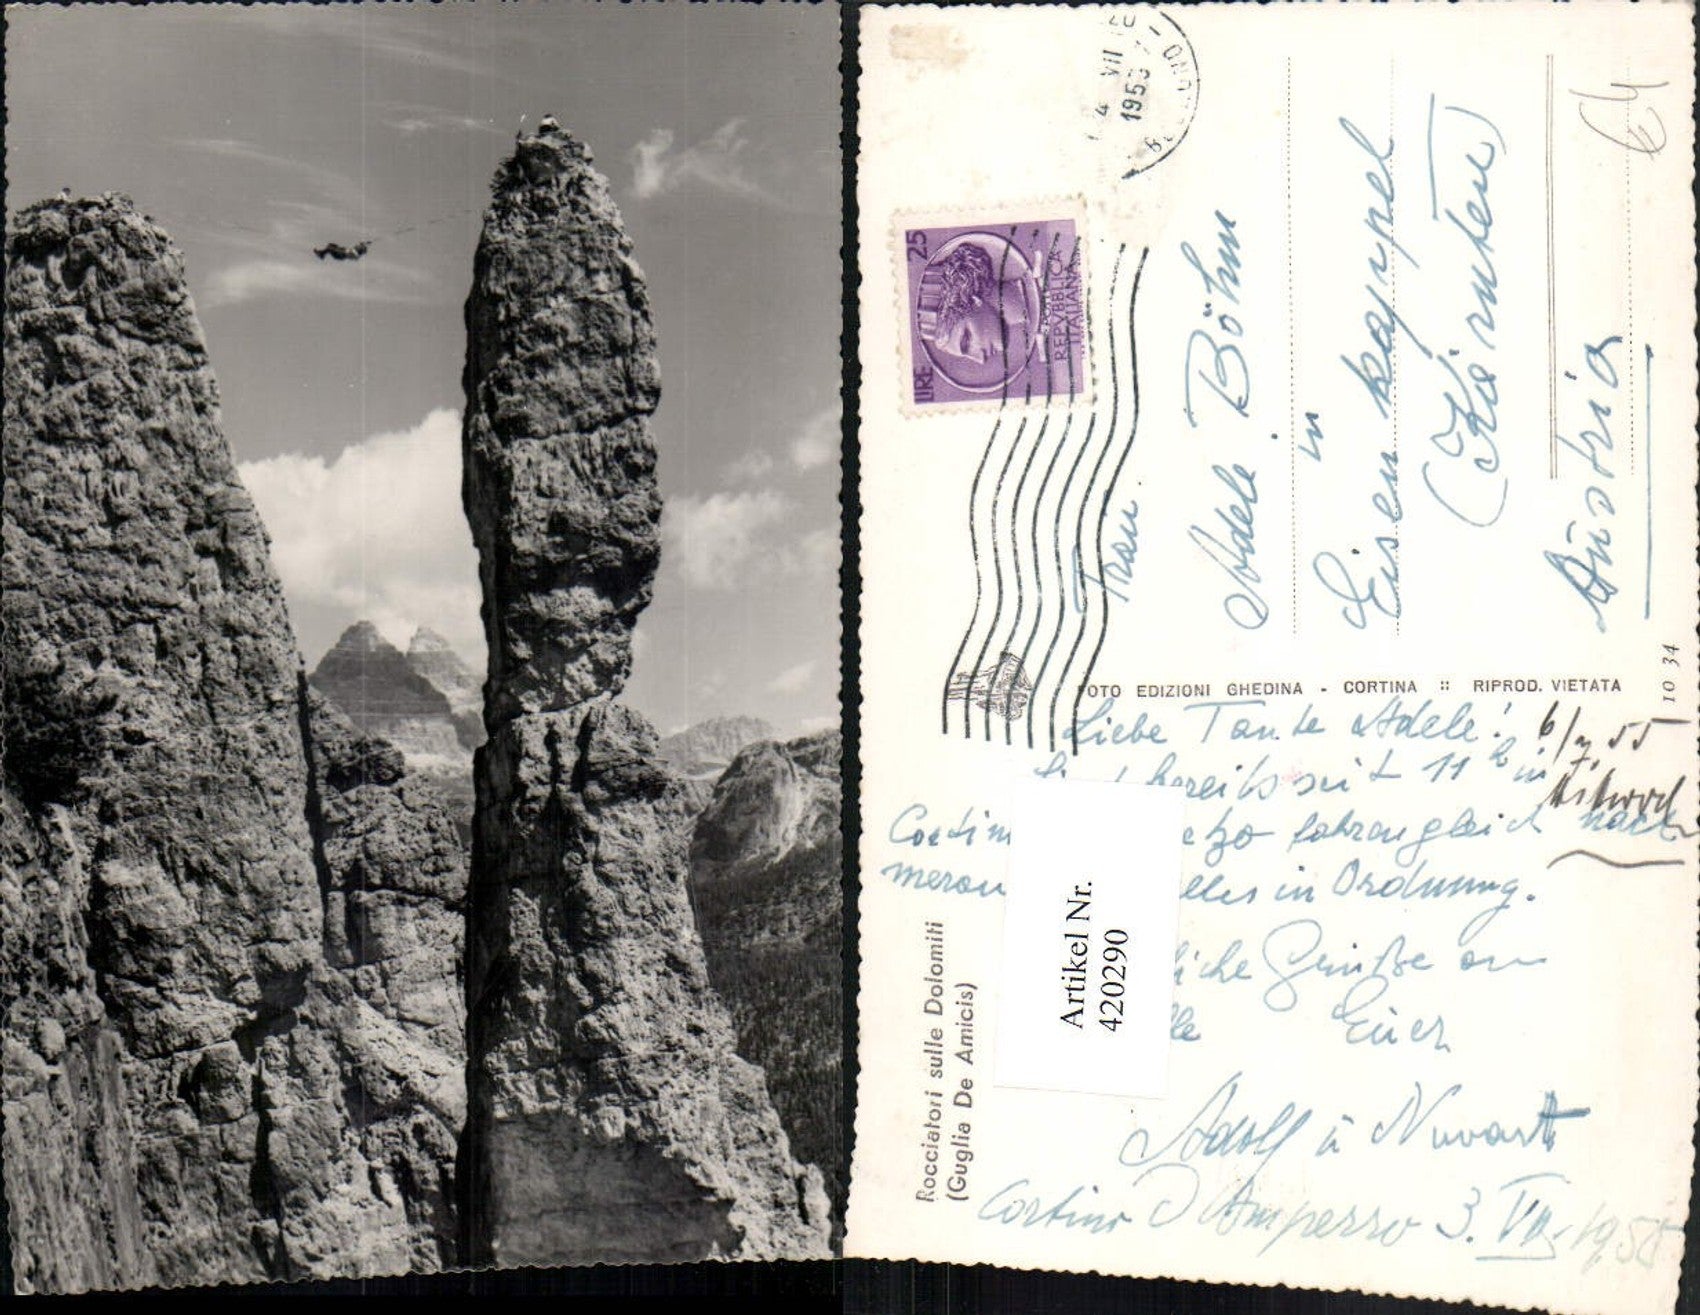 4 VII 20
1955
25
LIRE
REPVBBLICA
ITALIANA
Frau
Adele Böhm
in
Eisenkappel
(Kärnten)
Austria
FOTO EDIZIONI GHEDINA - CORTINA :: RIPROD. VIETATA
10 34
Liebe Tante Adele!
6/7. 55
bereits seit 11h in
Mittwoch
Cortin etzo fahren gleich nach
meran lles in Ordnung.
liche Grüße an
lle Euer
Adolf u
Cortina D'Ampezzo 3. VII. 1955
Rocciatori sulle Dolomiti
(Guglia De Amicis)
Artikel Nr.
420290